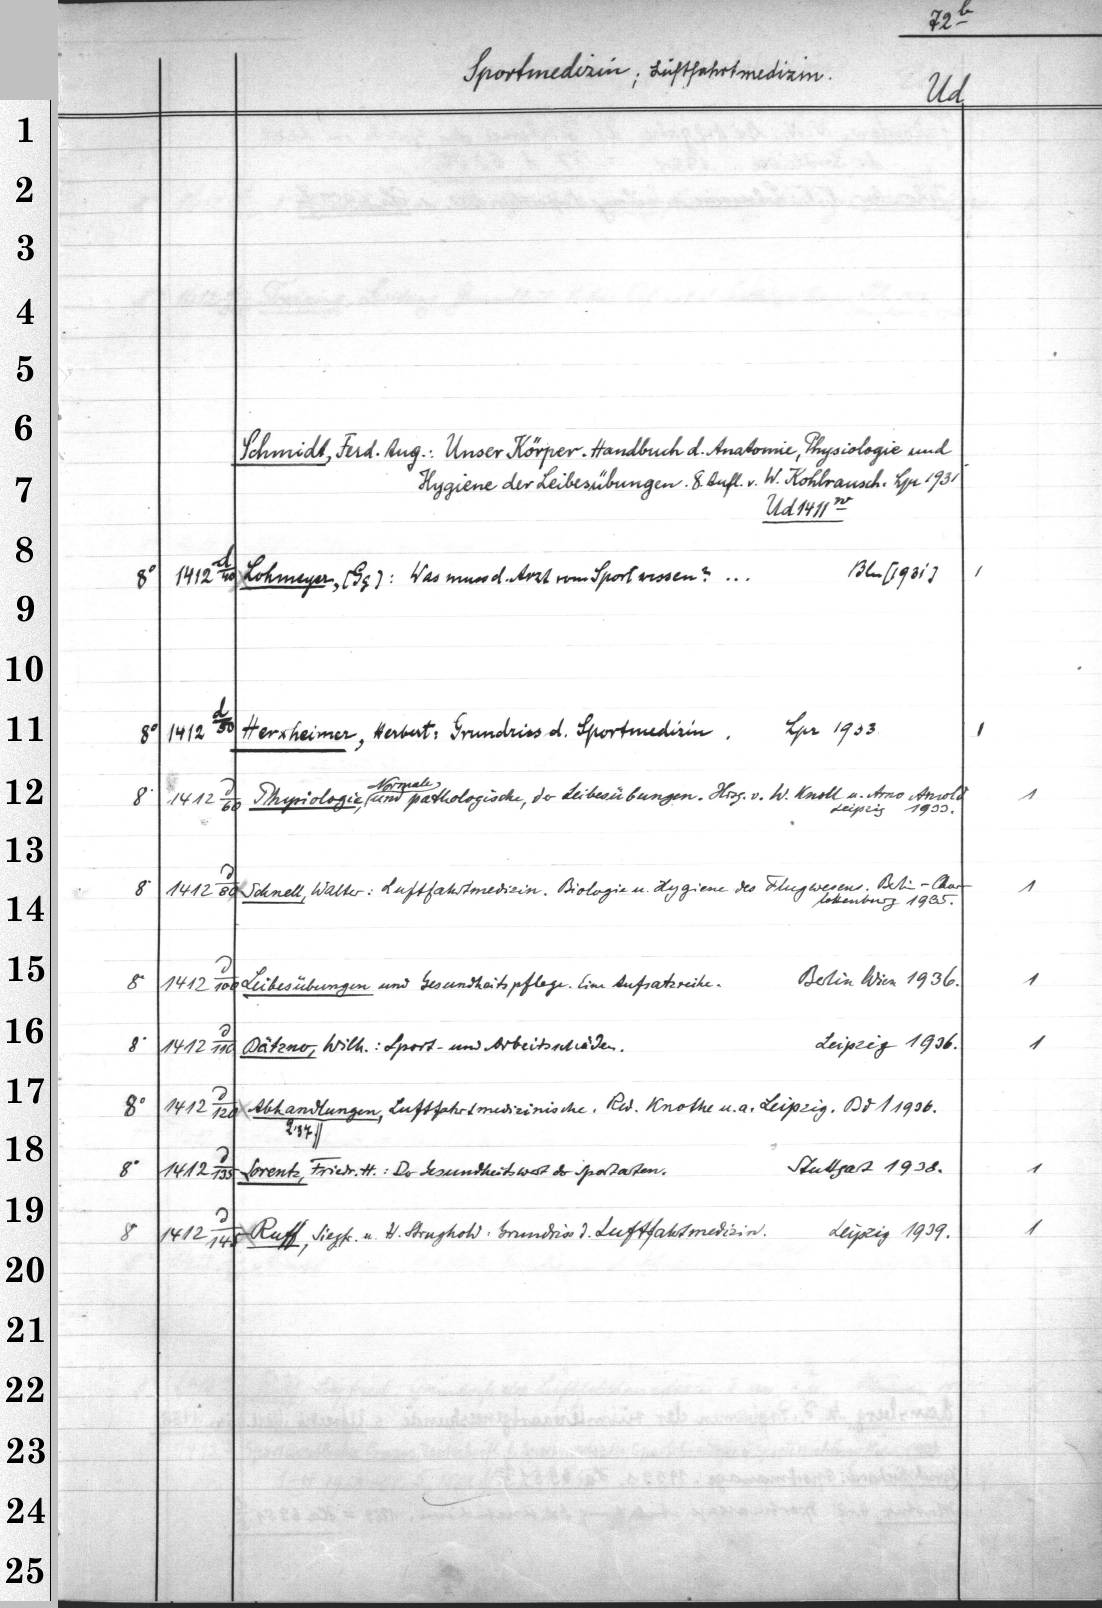 72 b
Sportmedizin; Luftfahrtmedizin.
Ud
1
2
3
4
5
6
Schmidt, Ferd. Aug.: Unser Körper. Handbuch d. Anatomie, Physiologie und
7
Hygiene der Leibesübungen. 8. Aufl. v. W. Kohlrausch. Lpz 1931
Ud 1411
8
8° 1412 d/40 Lohmeyer, [Gg]: Was muss d. Arzt vom Sport wissen? ... Bln [1931] 1
9
10
11
8° 1412 d/50 Herxheimer, Herbert: Grundriss d. Sportmedizin. Lpz 1933 1
12
8° 1412 d/60 Physiologie, Normale und pathologische, der Leibesübungen. Hrsg. v. W. Knoll u. Arno Arnold
Leipzig 1933. 1
13
8° 1412 d/80 Schnell, Walter: Luftfahrtmedizin. Biologie u. Hygiene des Flugwesens. Berlin-Char-
lottenburg 1935. 1
14
15
8° 1412 d/100 Leibesübungen und Gesundheitspflege. Eine Aufsatzreihe. Berlin Wien 1936. 1
16
8° 1412 d/110 Bätzner, Wilh.: Sport- und Arbeitsschäden. Leipzig 1936. 1
17
8° 1412 d/120 Abhandlungen, Luftfahrtmedizinische. Red. Knothe u.a. Leipzig. Bd 1 1936.
2.37
18
8° 1412 d/135 Lorentz, Friedr. H.: Der Gesundheitswert der Sportarten. Stuttgart 1938. 1
19
8° 1412 d/145 Ruff, Siegfr. u. H. Strughold: Grundriss d. Luftfahrtmedizin. Leipzig 1939. 1
20
21
22
23
24
25